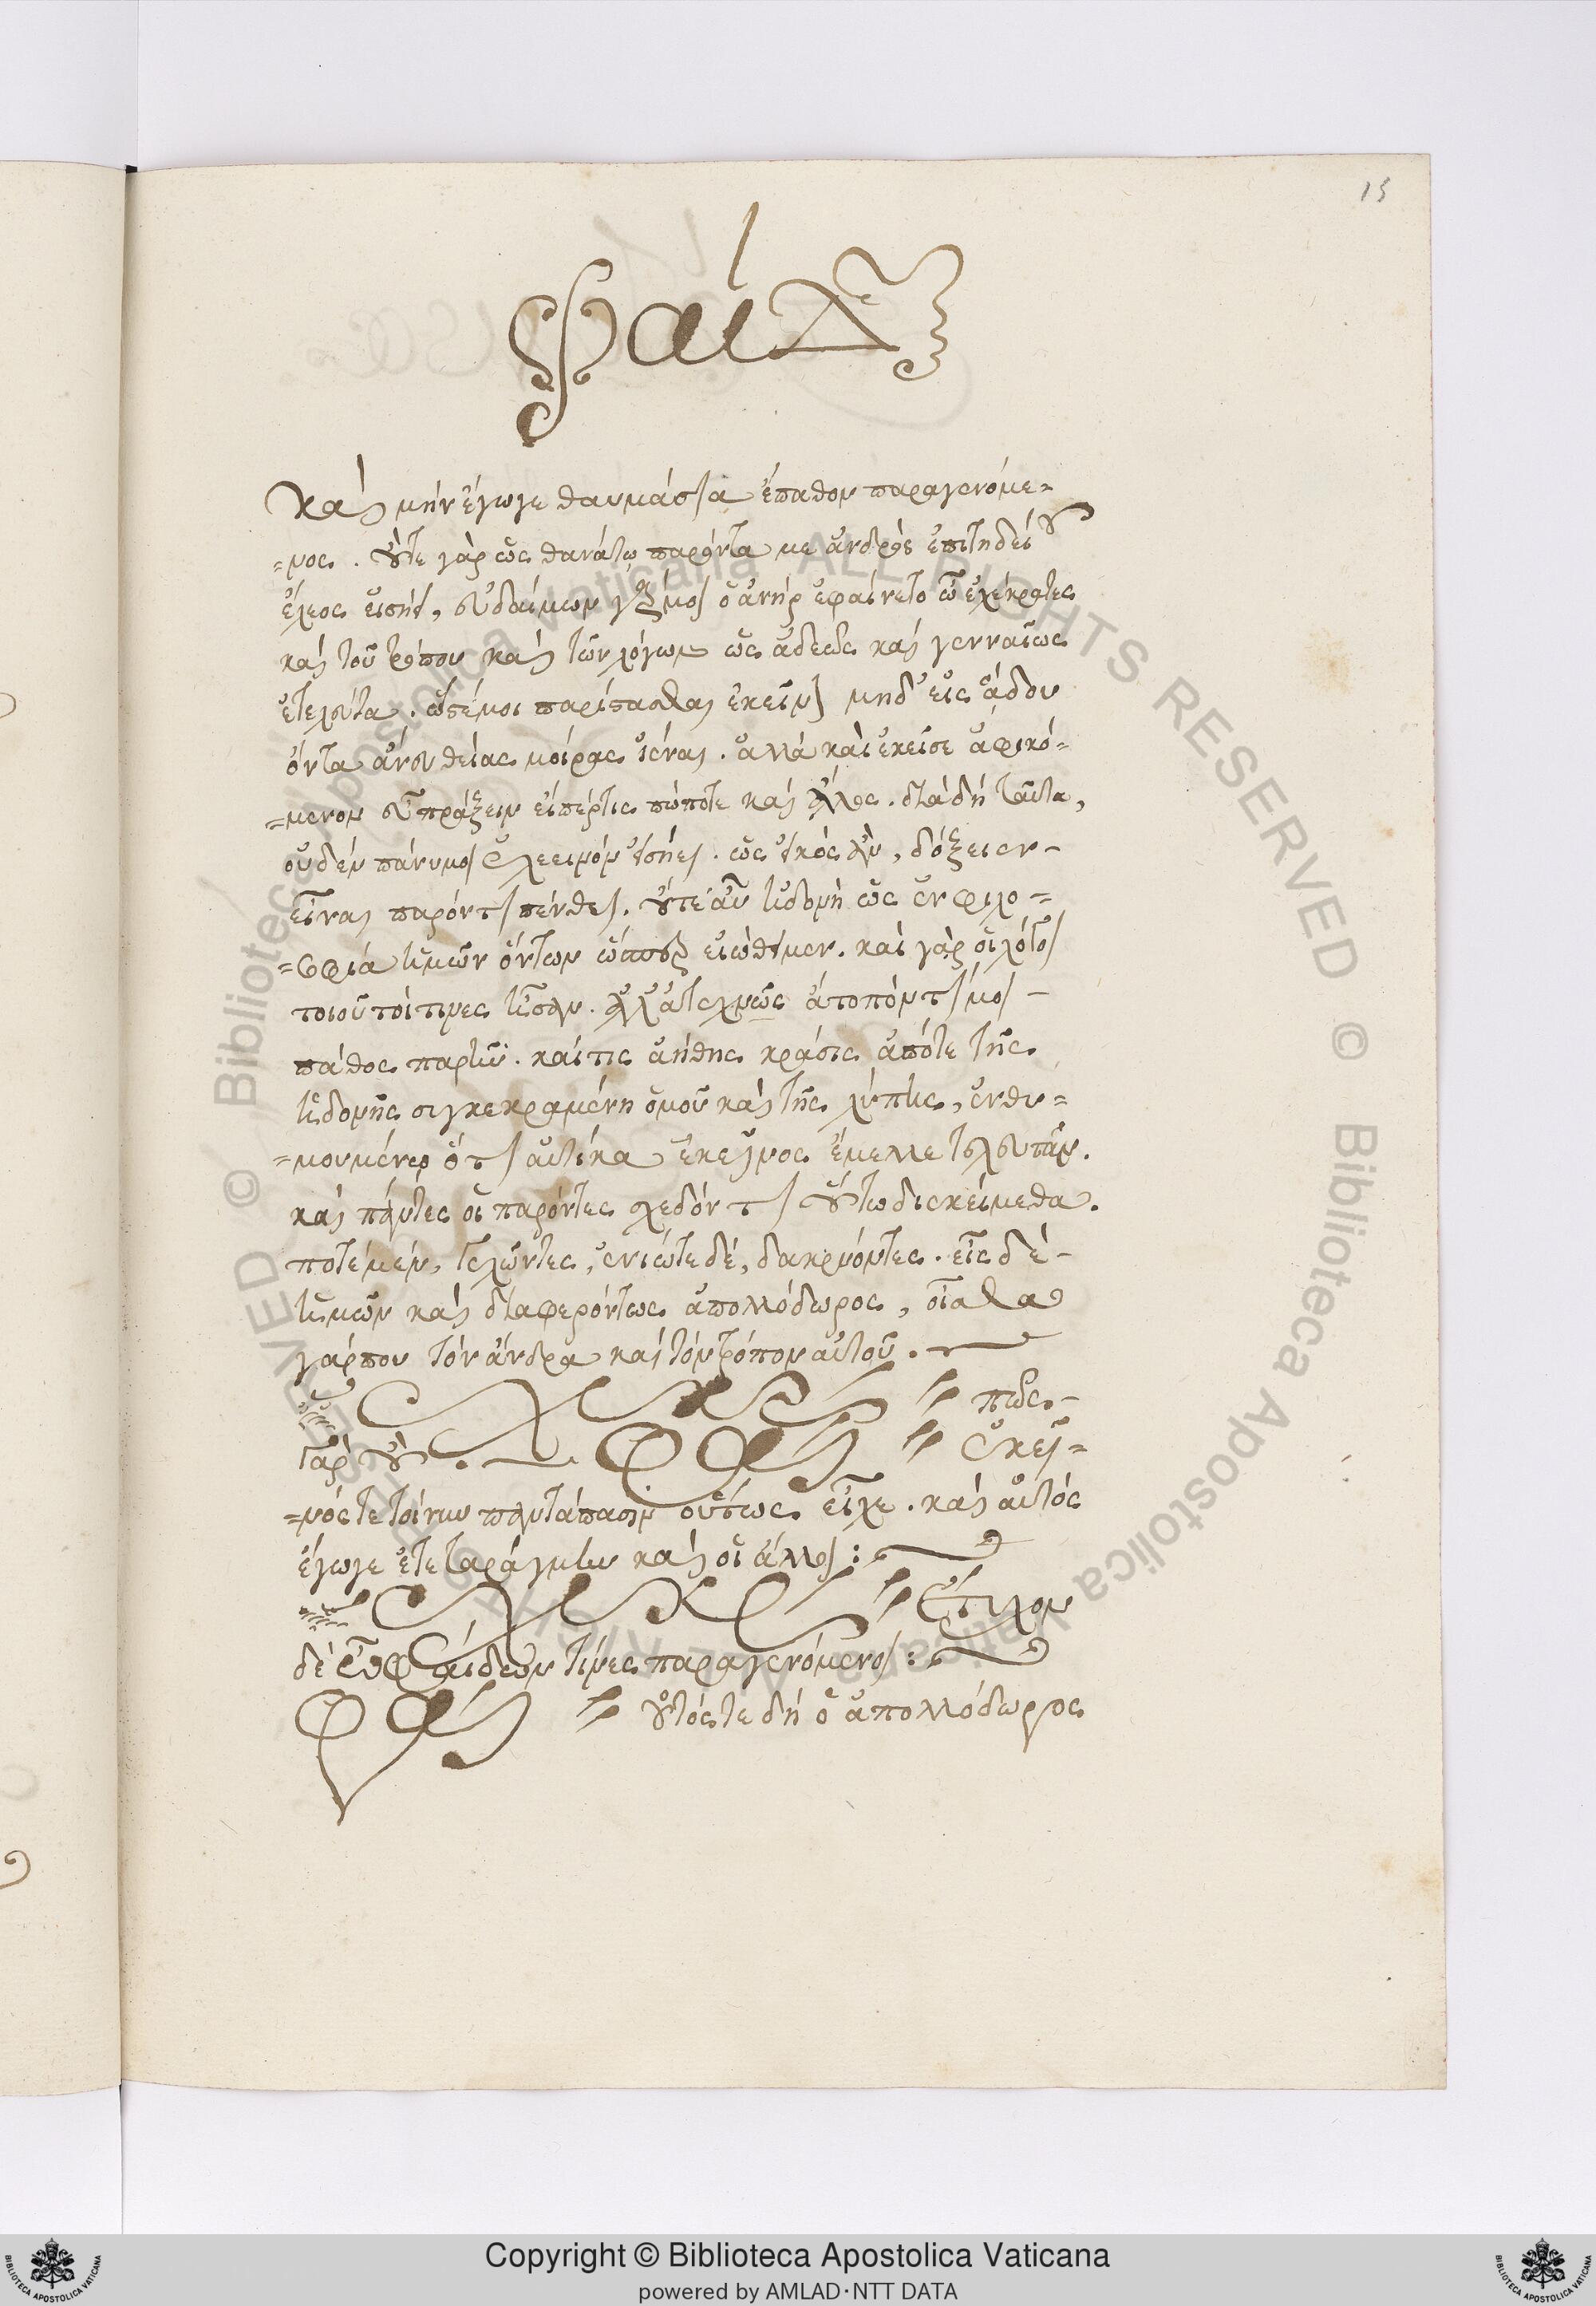 15
Φαίδ
Καὶ μὴν ἔγωγε θαυμάσια ἔπαθον παραγενόμε-
=νος. οὔτε γὰρ ὡς θανάτω παρόντα με ἀνδρὸς ἐπιτηδείου
ἔλεος εἰσήει, εὐδαίμων γάρ μοι ὁ ἀνὴρ ἐφαίνετο ὦ ἐχέκρατες
καὶ τοῦ τρόπου καὶ τῶν λόγων ὡς ἀδεῶς καὶ γενναίως
ἐτελεύτα. ὥστέμοι παρίστασθαι ἐκεῖνον μηδ' εἰς ἅδου
ἰόντα ἄνευ θείας μοίρας ἰέναι. ἀλλὰ καὶ ἐκεῖσε ἀφικό=
=μενον εὖ πράξειν εἴπέρτις πώποτε καὶ ἄλλος. διὰ δὴ ταῦτα,
οὐδὲν πάνυ μοι ἐλεεινὸν εἰσήει. ὡς εἰκὸς ἂν, δόξειεν-
εἶναι παρόντι πένθει. οὔτε αὖ ἡδονὴ ὡς ἐν φιλο=
=σοφία ἡμῶν ὄντων ὥσπερ εἰώθειμεν. καὶ γὰρ οἱ λόγοι
τοιοῦτοί τινες ἦσαν. ἀλλ' ἀτεχνῶς ἄτοπόν τί μοι -
πάθος παρῆν. καί τις ἀήθης κράσις ἀπό τε τῆς
ἡδονῆς συγκεκραμένη ὁμοῦ καὶ τῆς λύπης, ἐνθυ=
=μουμένω ὅτι αὐτίκα ἐκεῖνος ἔμελλε τελευτᾶν.
καὶ πάντες οἱ παρόντες σχεδόν τι οὕτω διεκείμεθα.
ποτὲ μέν, γελῶντες, ἐνίοτε δέ, δακρύοντες. εἷς δὲ -
ἡμῶν καὶ διαφερόντως ἀπολλόδωρος, οἶσθα
γάρ που τὸν ἄνδρα καὶ τὸν τρόπον αὐτοῦ.
ἐχε πῶς -
γὰρ οὔ. φαί ἐκεῖ=
=νός τε τοίνυν παντάπασιν οὕτως εἶχε. καὶ αὐτὸς
ἔγωγε ἐτεταράγμην καὶ οἱ ἄλλοι:
ἐχε ἔτυχον
δὲ ὦ φαίδων τίνες παραγενόμενοι:
φαί οὗτός τε δὴ ὁ ἀπολλόδωρος
Copyright © Biblioteca Apostolica Vaticana
powered by AMLAD·NTT DATA